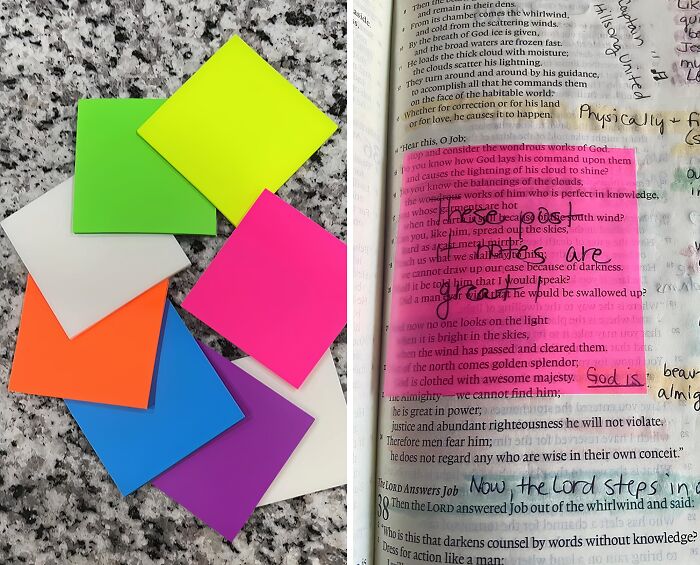 Then the
and remain in their dens.
From its chamber comes the whirlwind,
and cold from the scattering winds.
By the breath of God ice is given,
and the broad waters are frozen fast.
He loads the thick cloud with moisture;
the clouds scatter his lightning.
They turn around and around by his guidance,
to accomplish all that he commands them
on the face of the habitable world.
Whether for correction or for his land
or for love, he causes it to happen.
Captain
Hillsong United
Physically + Fi
"Hear this, O Job;
stop and consider the wondrous works of God.
Do you know how God lays his command upon them
and causes the lightning of his cloud to shine?
Do you know the balancings of the clouds,
the wondrous works of him who is perfect in knowledge,
you whose garments are hot
when the earth is still because of the south wind?
Can you, like him, spread out the skies,
hard as a cast metal mirror?
Teach us what we shall say to him;
we cannot draw up our case because of darkness.
Shall it be told him that I would speak?
Did a man ever wish that he would be swallowed up?
These post
it notes are
great!
now no one looks on the light
when it is bright in the skies,
when the wind has passed and cleared them.
of the north comes golden splendor;
God is clothed with awesome majesty.
God is:
beau
almig
The Almighty—we cannot find him;
he is great in power;
justice and abundant righteousness he will not violate.
Therefore men fear him;
he does not regard any who are wise in their own conceit."
The LORD Answers Job
Now, the Lord steps in
38 Then the LORD answered Job out of the whirlwind and said:
"Who is this that darkens counsel by words without knowledge?
Dress for action like a man;